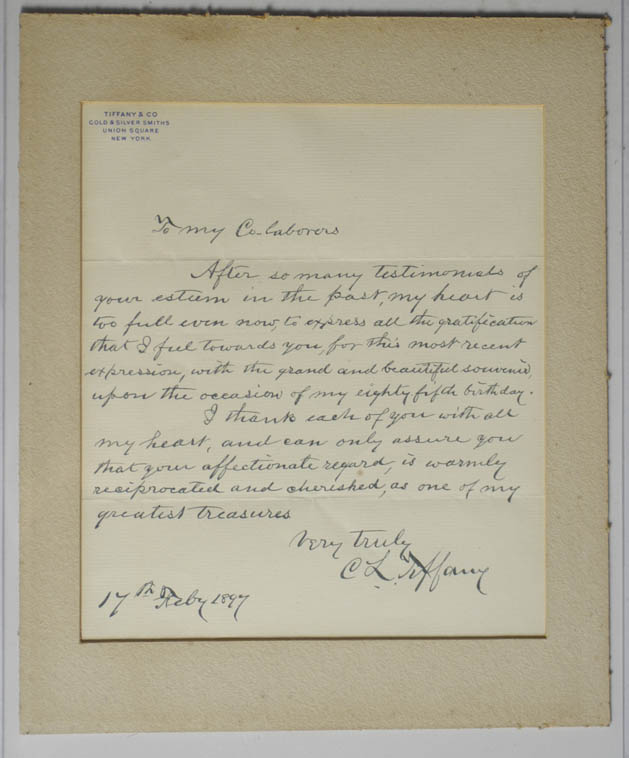 TIFFANY & CO
GOLD & SILVER SMITHS
UNION SQUARE
NEW YORK.
To my Co-laborers
After so many testimonials of
your esteem in the past, my heart is
too full even now, to express all the gratification
that I feel towards you, for this most recent
expression, with the grand and beautiful souvenir,
upon the occasion of my eighty fifth birthday.
I thank each of you with all
my heart, and can only assure you
that your affectionate regard, is warmly
reciprocated and cherished, as one of my
greatest treasures
Very truly
C. L. Tiffany
17th Feby 1897